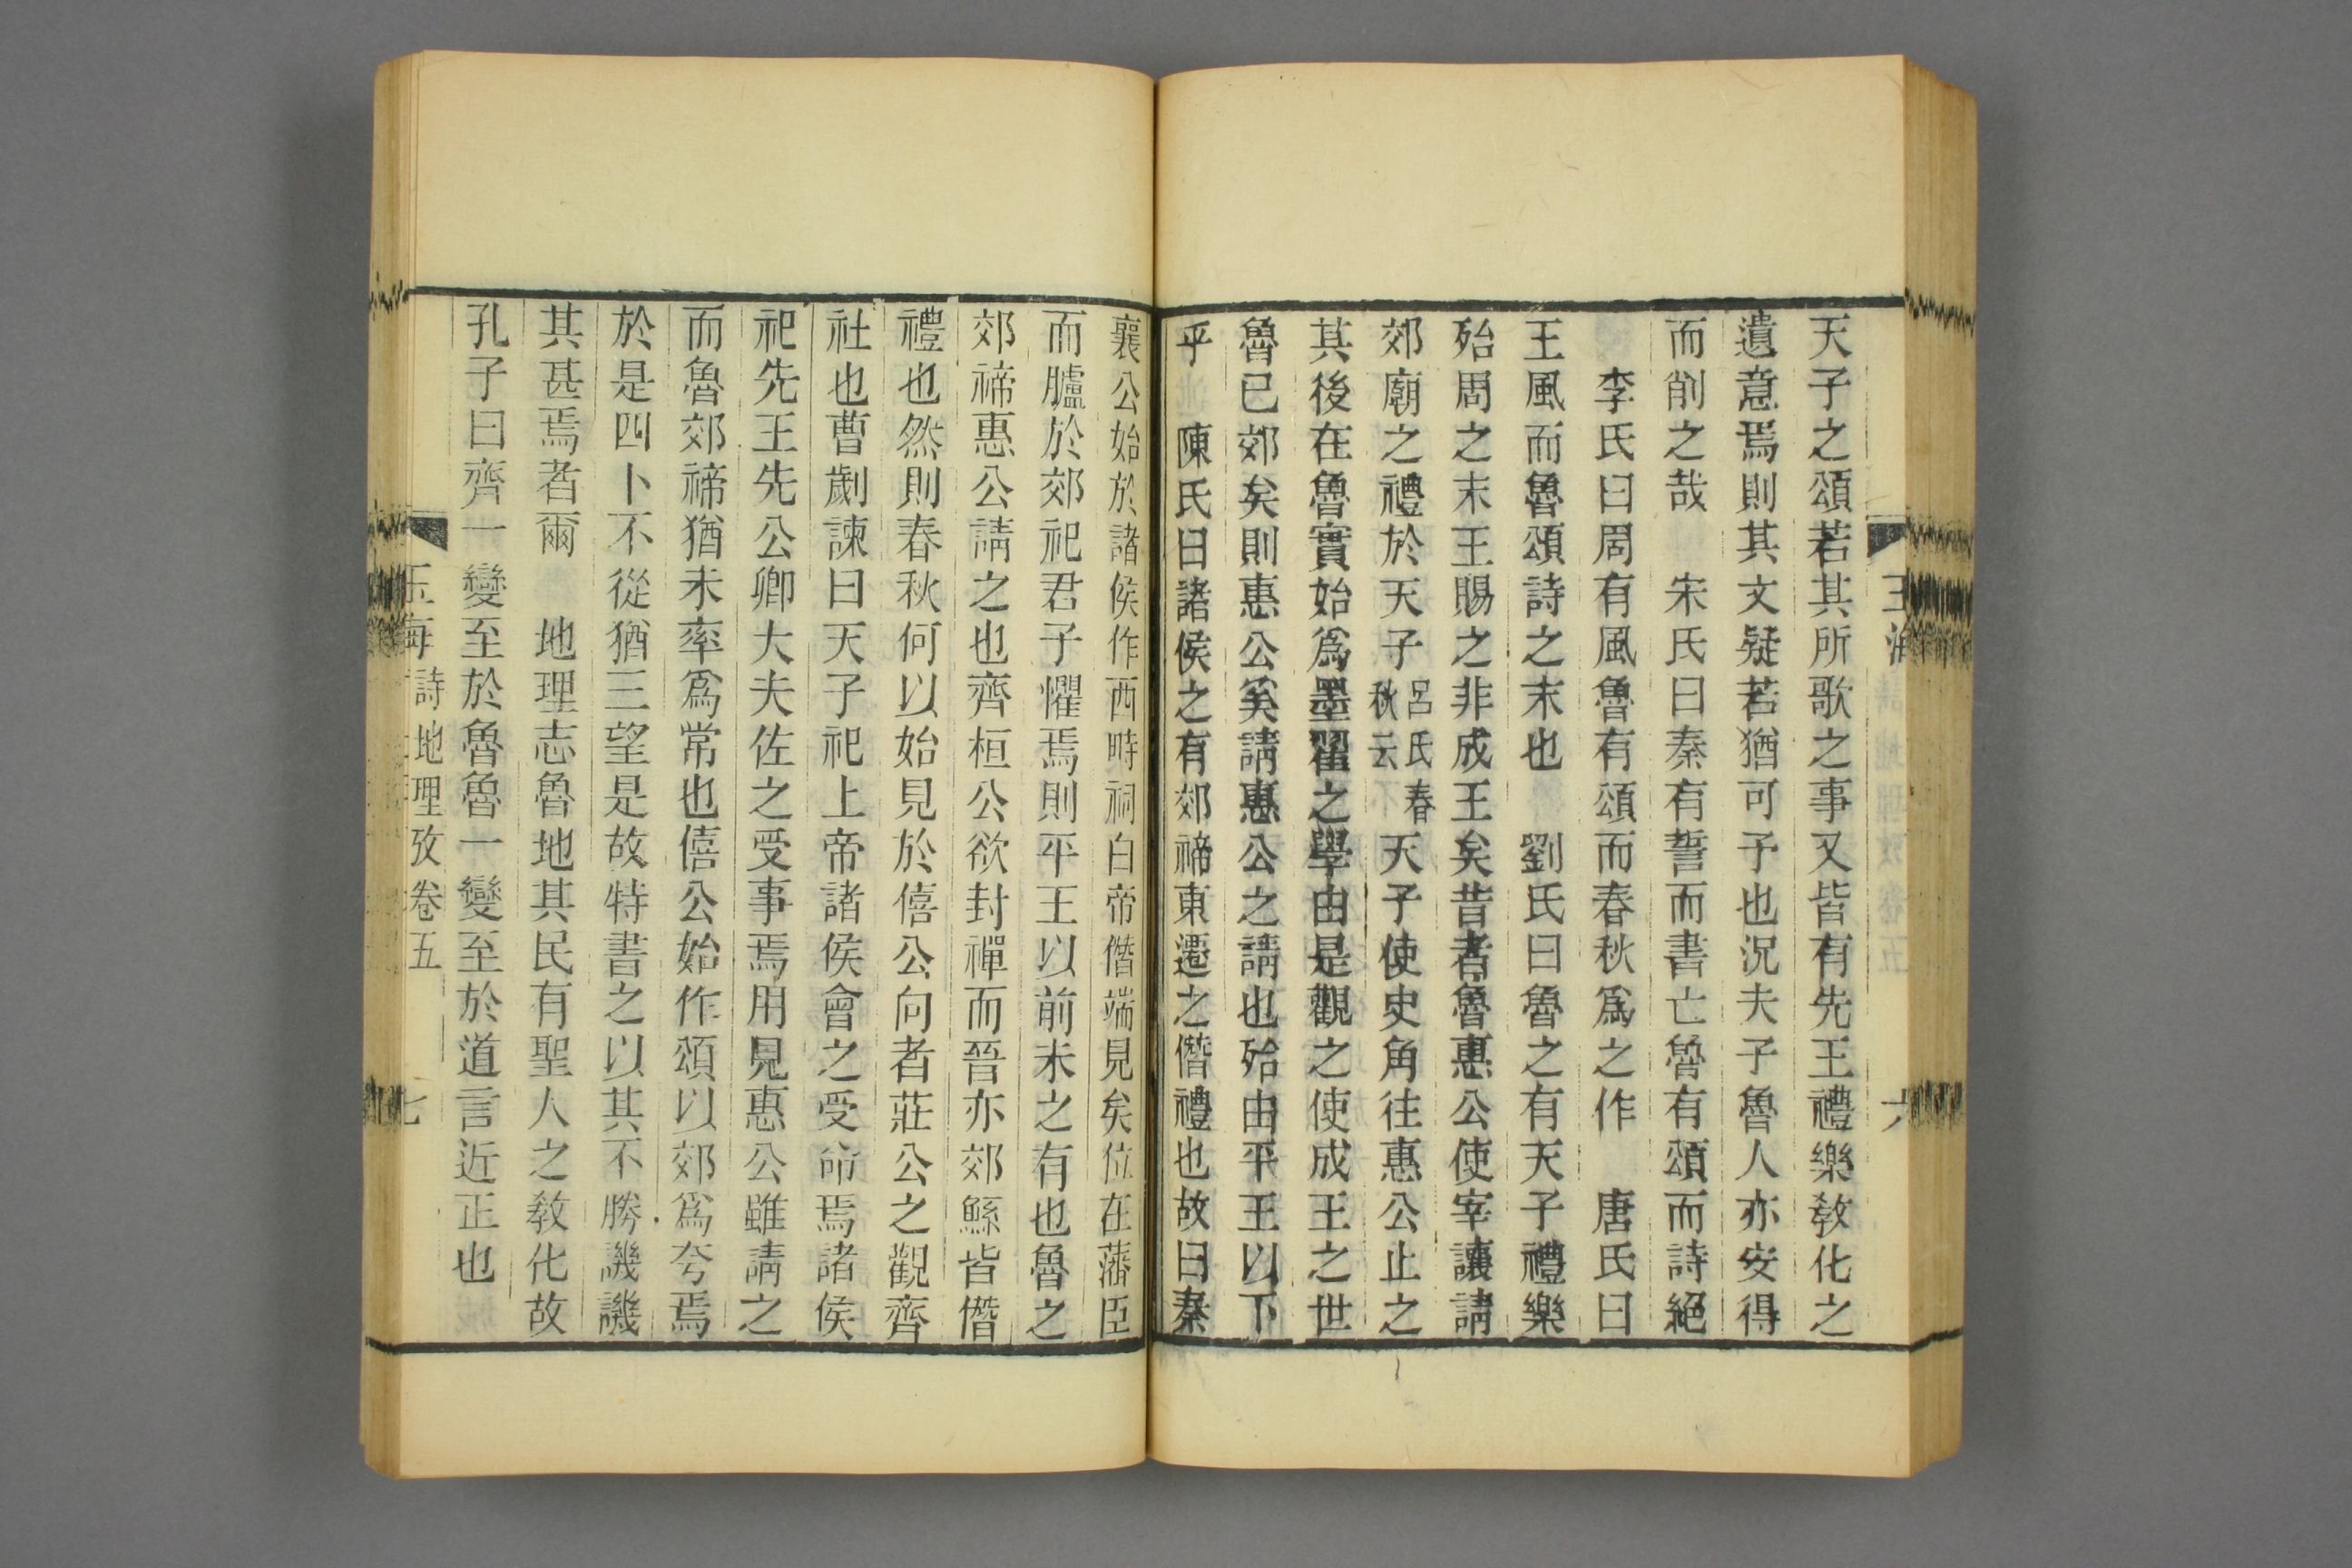 天子之頌若其所歌之事又皆有先王禮樂敎化之
遺意焉則其文疑若猶可予也況夫子魯人亦安得
而削之哉　宋氏曰秦有誓而書亡魯有頌而詩絕
李氏曰周有風魯有頌而春秋爲之作　唐氏曰
王風而魯頌詩之末也　劉氏曰魯之有天子禮樂
殆周之末王賜之非成王矣昔者魯惠公使宰讓請
郊廟之禮於天子呂氏春秋云天子使史角往惠公止之
其後在魯實始爲墨翟之學由是觀之使成王之世
魯已郊矣則惠公奚請惠公之請也殆由平王以下
乎　陳氏曰諸侯之有郊禘東遷之僭禮也故曰秦
襄公始於諸侯作西畤祠白帝僭端見矣位在藩臣
而臚於郊祀君子懼焉則平王以前未之有也魯之
郊禘惠公請之也齊桓公欲封禪而晉亦郊鯀皆僭
禮也然則春秋何以始見於僖公向者莊公之觀齊
社也曹劌諫曰天子祀上帝諸侯會之受命焉諸侯
祀先王先公卿大夫佐之受事焉用見惠公雖請之
而魯郊禘猶未率爲常也僖公始作頌以郊爲夸焉
於是四卜不從猶三望是故特書之以其不勝譏譏
其甚焉者爾　地理志魯地其民有聖人之敎化故
孔子曰齊一變至於魯魯一變至於道言近正也
玉海　詩地理攷卷五　七